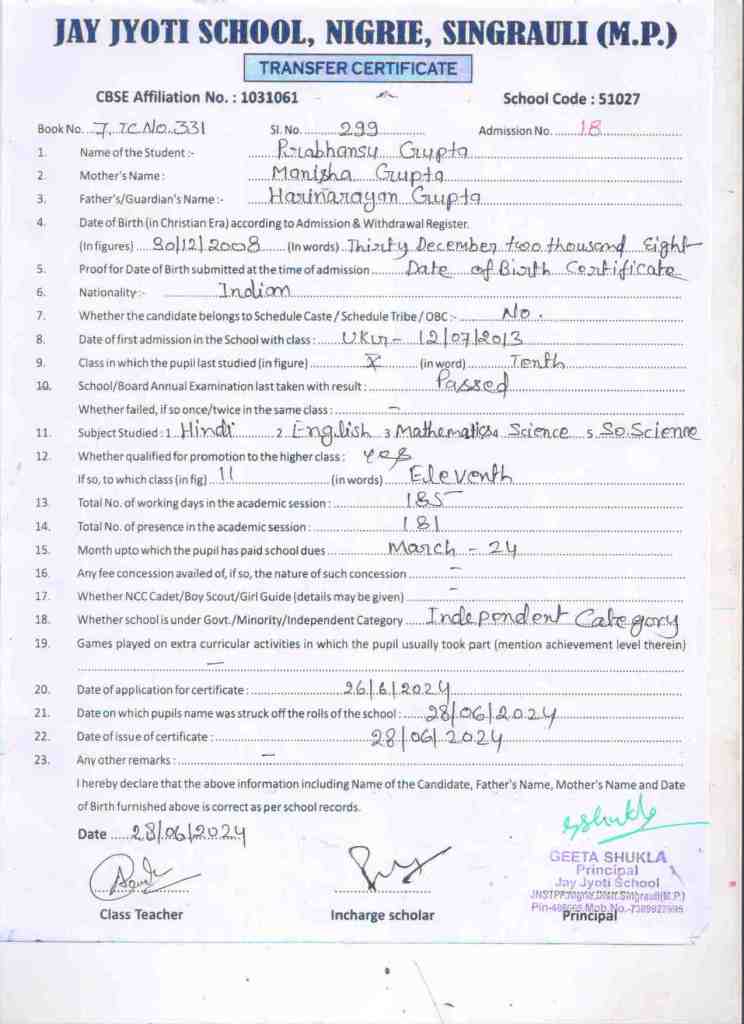 JAY JYOTI SCHOOL, NIGRIE, SINGRAULI (M.P.)
TRANSFER CERTIFICATE
CBSE Affiliation No. : 1031061 School Code : 51027
Book No. 7, TC No. 331 Sl. No. 299 Admission No. 18
1. Name of the Student :- Priabhansu Gupta
2. Mother's Name : Manisha Gupta
3. Father's/Guardian's Name :- Harinarayan Gupta
4. Date of Birth (in Christian Era) according to Admission & Withdrawal Register.
(In figures) 30/12/2008 (In words) Thirty December two thousand Eight
5. Proof for Date of Birth submitted at the time of admission Date of Birth Certificate
6. Nationality :- Indian
7. Whether the candidate belongs to Schedule Caste / Schedule Tribe / OBC :- No.
8. Date of first admission in the School with class : UKG - 12/07/2013
9. Class in which the pupil last studied (in figure) X (in word) Tenth
10. School/Board Annual Examination last taken with result : Passed
Whether failed, if so once/twice in the same class : -
11. Subject Studied : 1 Hindi 2 English 3 Mathematics 4 Science 5 So. Science
12. Whether qualified for promotion to the higher class : Yes
If so, to which class (in fig) 11 (in words) Eleventh
13. Total No. of working days in the academic session : 185
14. Total No. of presence in the academic session : 181
15. Month upto which the pupil has paid school dues March - 24
16. Any fee concession availed of, if so, the nature of such concession -
17. Whether NCC Cadet/Boy Scout/Girl Guide (details may be given) -
18. Whether school is under Govt./Minority/Independent Category Independent Category
19. Games played on extra curricular activities in which the pupil usually took part (mention achievement level therein)
-
20. Date of application for certificate : 26/6/2024
21. Date on which pupils name was struck off the rolls of the school : 28/06/2024
22. Date of issue of certificate : 28/06/2024
23. Any other remarks : -
I hereby declare that the above information including Name of the Candidate, Father's Name, Mother's Name and Date
of Birth furnished above is correct as per school records.
Date 28/06/2024
GShukla
GEETA SHUKLA
Principal
Jay Jyoti School
JNSTPP, Nigrie, Distt. Singrauli (M.P.)
Class Teacher Incharge scholar Principal